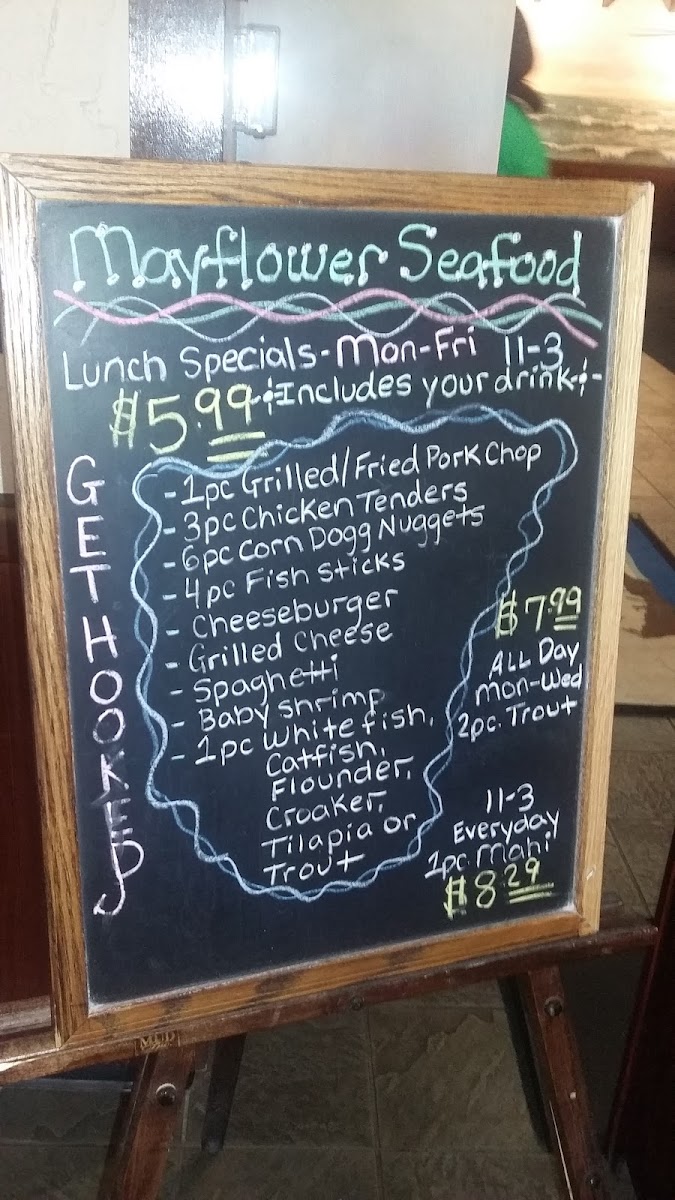 Mayflower Seafood
Lunch Specials - Mon-Fri 11-3
$5.99 Includes your drink
GET HOOKED
- 1pc Grilled/Fried Pork Chop
- 3pc Chicken Tenders
- 6pc Corn Dogg Nuggets
- 4pc Fish Sticks
- Cheeseburger
- Grilled Cheese
- Spaghetti
- Baby shrimp
- 1pc White fish,
Catfish,
Flounder,
Croaker,
Tilapia or
Trout
$7.99
ALL Day
Mon-Wed
2pc. Trout
11-3
Everyday
1pc. Mahi
$8.29